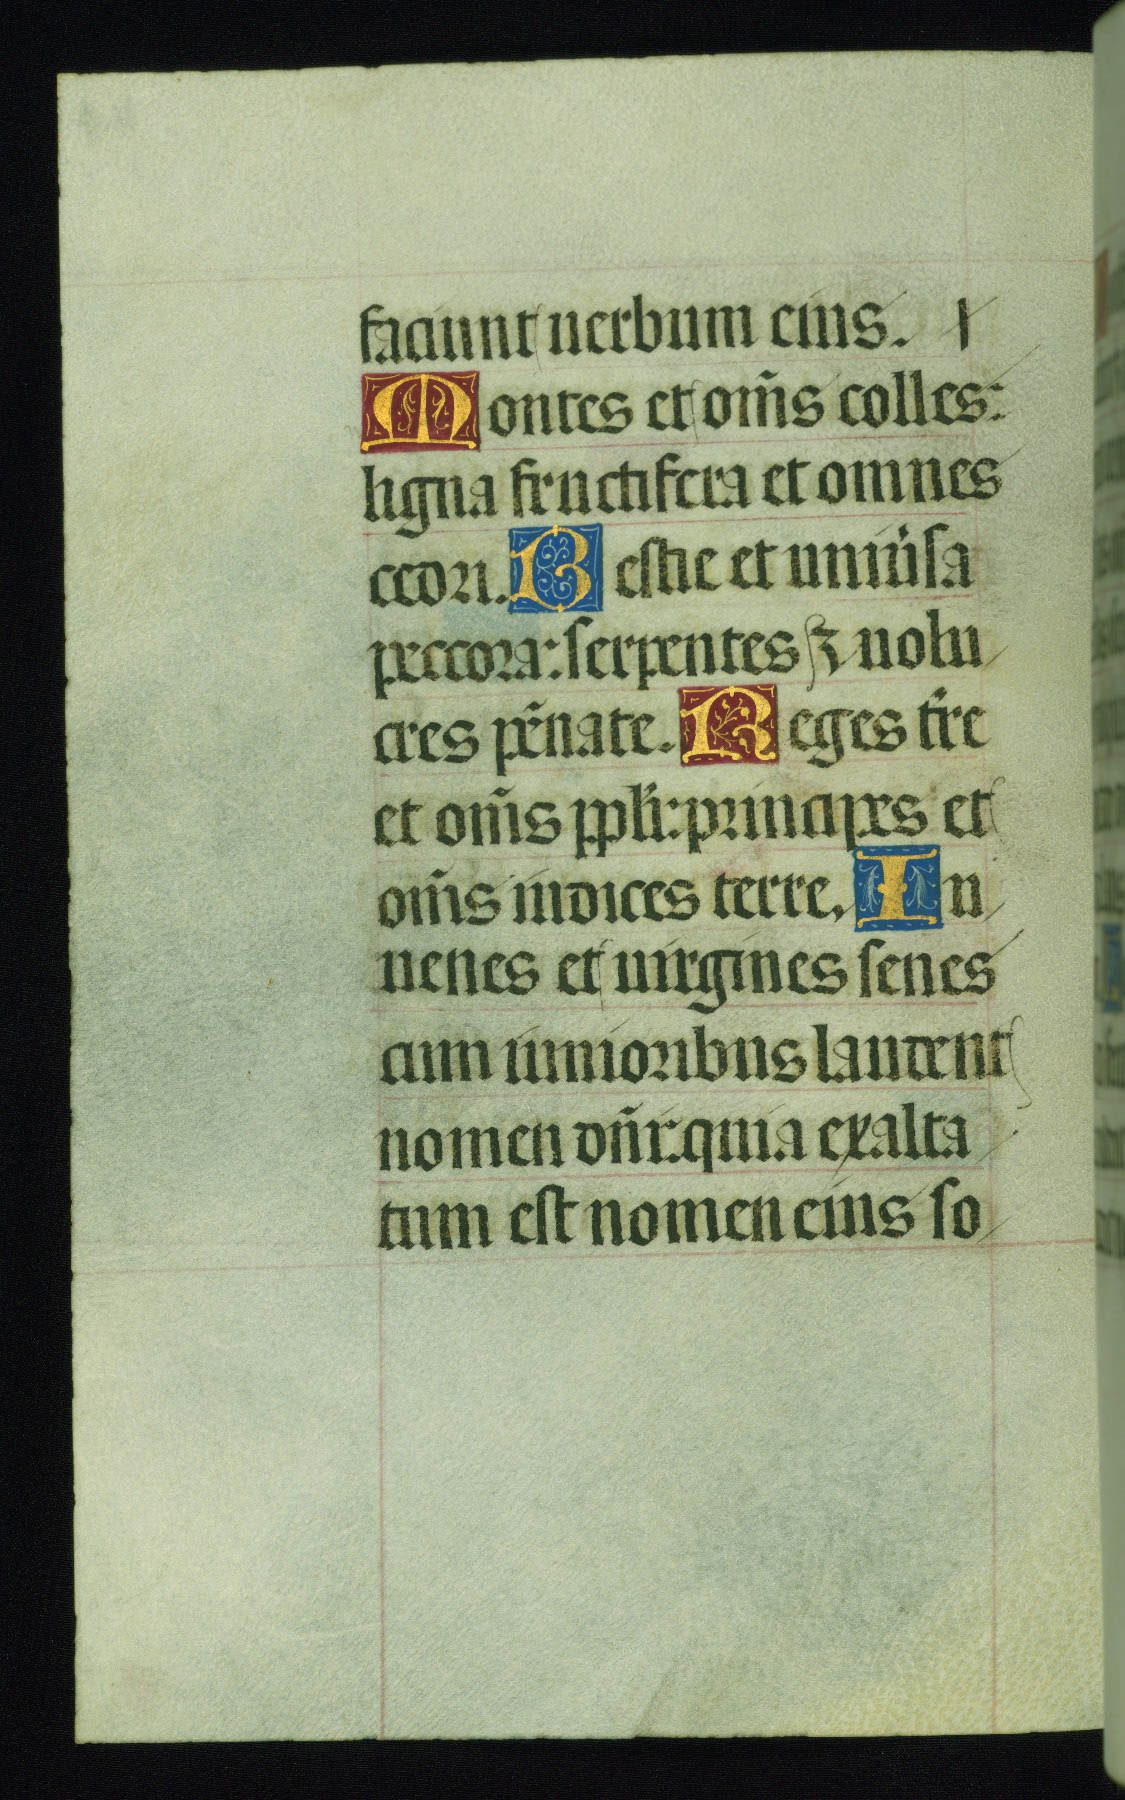 faciunt uerbum eius. I
Montes et om̄s colles:
ligna fructifera et omnes
cedri. Bestie et uniu̇sa
peccora: serpentes sꝫ uolu
cres pēnate. Reges tr̄e
et om̄s ppl̄i: principes et
om̄s iudices terre. Iu
uenes et uirgines senes
cum iunioribus laudent
nomen dn̄i: quia exalta
tum est nomen eius so